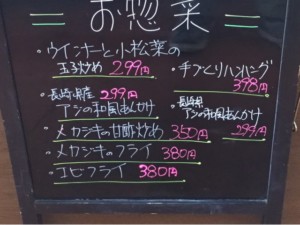 お惣菜
・ウインナーと小松菜の
玉子炒め 299円
・長崎県産 299円
アジの和風あんかけ
・メカジキの甘酢炒め 350円
・メカジキのフライ 380円
・エビフライ 380円
・手づくりハンバーグ
398円
・長崎県
アジの和風あんかけ
299円